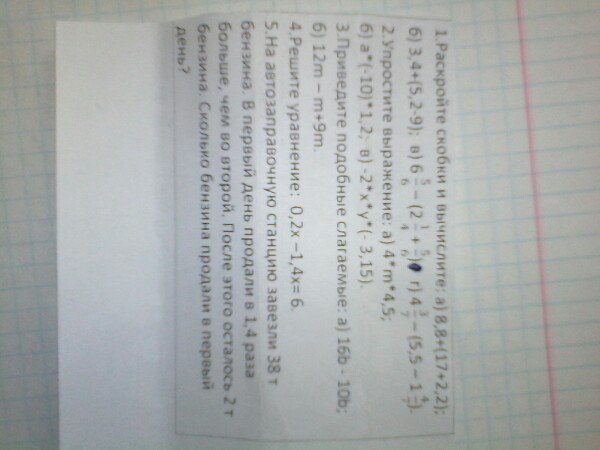 1.Раскройте скобки и вычислите: а) 8,8+(17+2,2);
б) 3,4+(5,2-9); в) 6 5/6 – (2 1/4 + 5/6); г) 4 3/7 – (5,5 – 1 4/7).
2.Упростите выражение: а) 4*m*4,5;
б) a*(-10)*1,2; в) -2*x*y*(- 3,15).
3.Приведите подобные слагаемые: а) 16b - 10b;
б) 12m – m+9m.
4.Решите уравнение: 0,2x –1,4x= 6.
5.На автозаправочную станцию завезли 38 т
бензина. В первый день продали в 1,4 раза
больше, чем во второй. После этого осталось 2 т
бензина. Сколько бензина продали в первый
день?